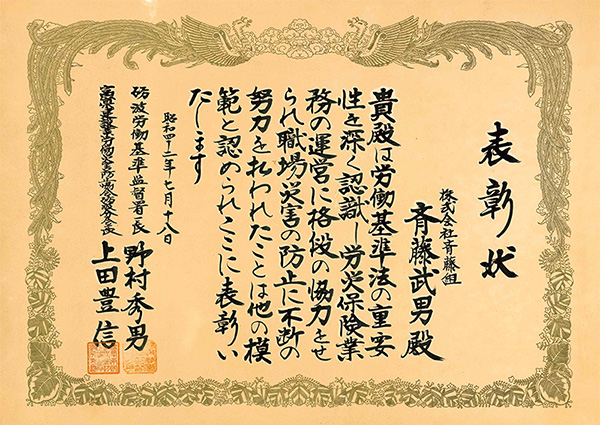 表彰状
株式会社斉藤組
斉藤武男殿
貴殿は労働基準法の重要
性を深く認識し労災保険業
務の運営に格段の協力をせ
られ職場災害の防止に不断の
努力を払われたことは他の模
範と認められここに表彰い
たします
昭和四十二年七月十八日
砺波労働基準監督署長 野村秀男
上田豊信